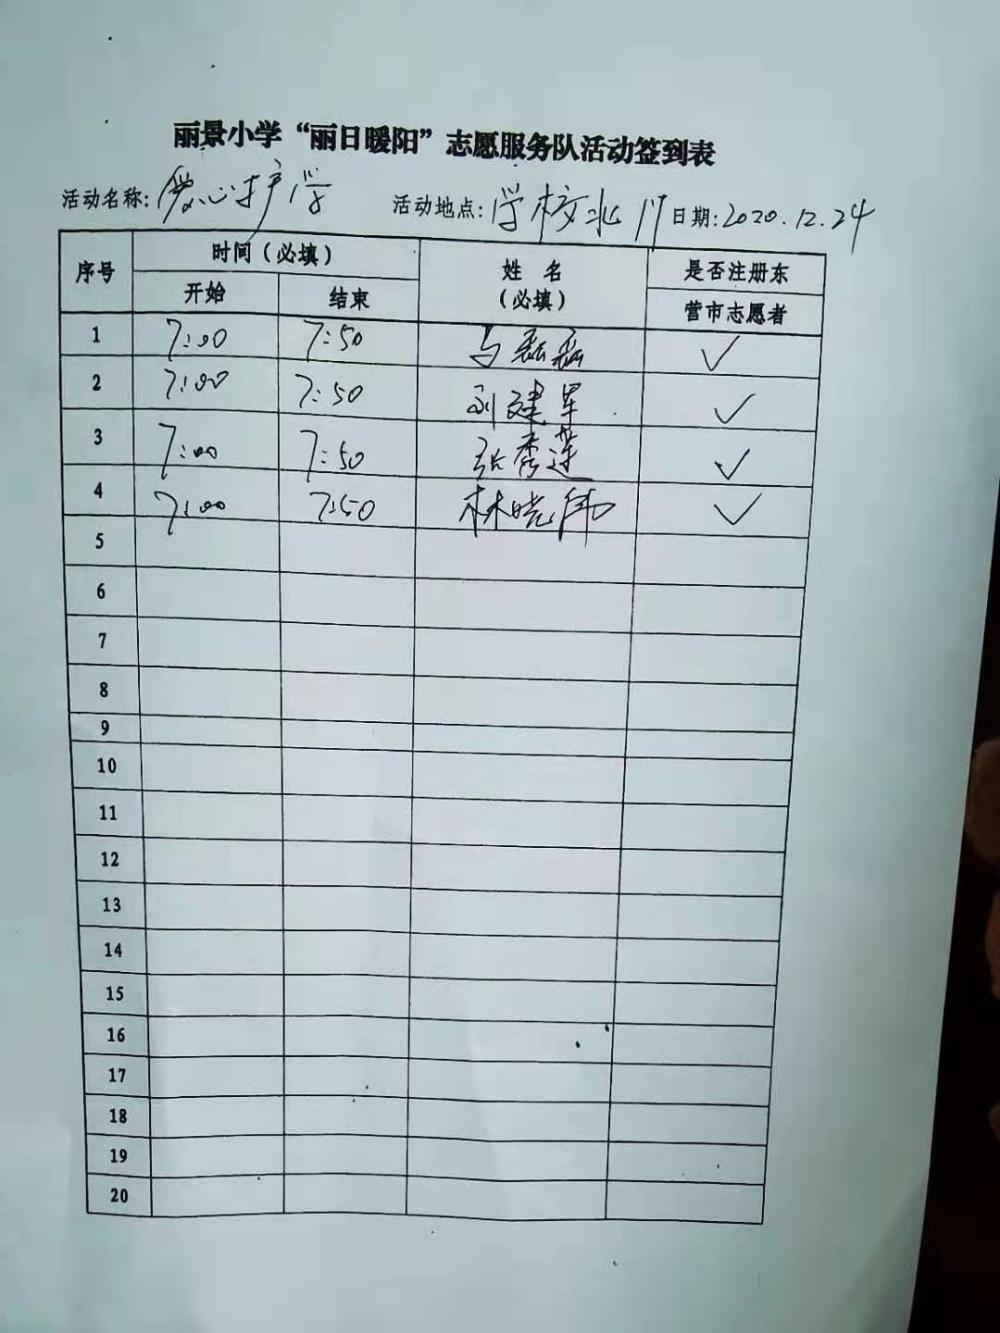 丽景小学“丽日暖阳”志愿服务队活动签到表
活动名称:爱心护学 活动地点:学校北门 日期:2020.12.24
序号 时间（必填） 姓 名 是否注册东
开始 结束 （必填） 营市志愿者
1 7:00 7:50 马磊磊 ✓
2 7:00 7:50 刘建军 ✓
3 7:00 7:50 张秀莲 ✓
4 7:00 7:50 林晓伟 ✓
5
6
7
8
9
10
11
12
13
14
15
16
17
18
19
20